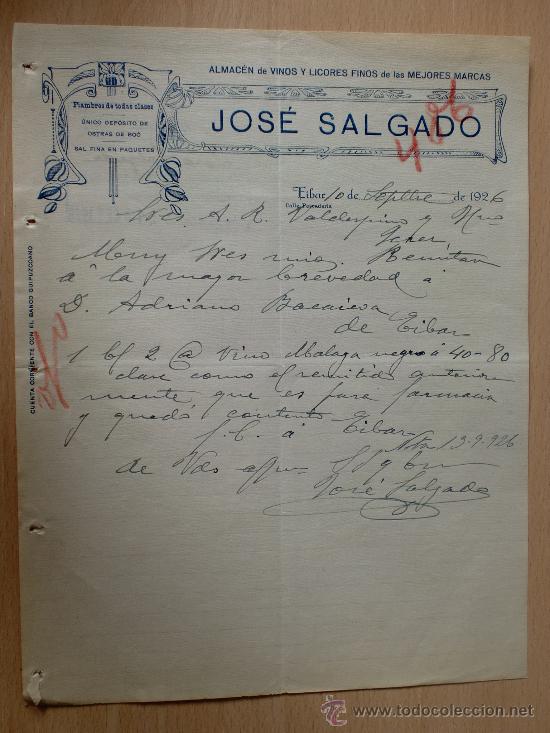 ALMACÉN de VINOS Y LICORES FINOS de las MEJORES MARCAS
JOSÉ SALGADO
Fiambres de todas clases
ÚNICO DEPÓSITO DE
OSTRAS DE ROC
SAL FINA EN PAQUETES
406
Eibar 10 de Septbre de 1926
Calle Pescadería
Sres. A. R. Valdespino y Hno
Jerez
Muy Sres mios. Remitan
a la mayor brevedad a
D. Adriano
de Eibar
1 bl 2 @ Vino Malaga negro a 40-80
clase como el remitido anterior
mente, que es para farmacia
y quedó contento
f. c. a Eibar
Nota 13-9-926
de Vds affmo S
José Salgado
CUENTA CORRIENTE CON EL BANCO GUIPUZCOANO
todocoleccion
www.todocoleccion.net